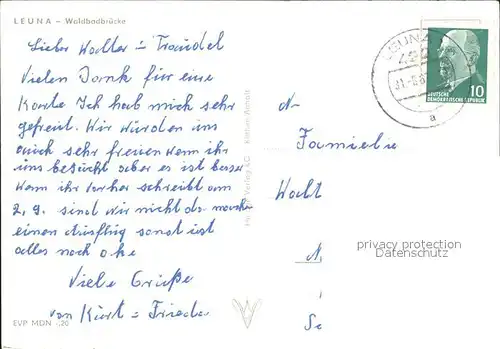 LEUNA – Waldbadbrücke
Lieber Walter = Traudel
Vielen Dank für eure
Karte Ich hab mich sehr
gefreut. Wir würden uns
auch sehr freuen wenn ihr
uns besucht aber es ist besser
wenn ihr vorher schreibt am
2.9. sind wir nicht da machen
einen Ausflug sonst ist
alles noch oke
Viele Grüße
von Kurt = Frieda
EVP MDN -,20
LEUNA
a
DEUTSCHE
DEMOKRATISCHE REPUBLIK
10
Familie
Walt
privacy protection
Datenschutz